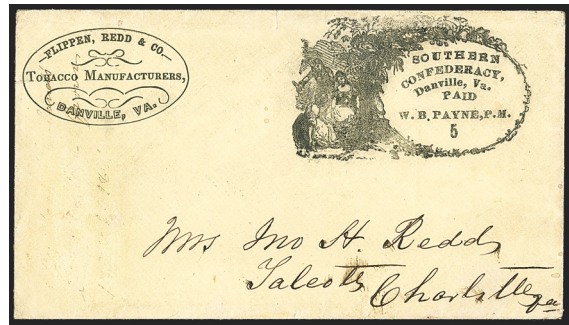 FLIPPEN, REDD & CO.
TOBACCO MANUFACTURERS,
DANVILLE, VA.
SOUTHERN
CONFEDERACY,
Danville, Va.
PAID
W. B. PAYNE, P. M.
5
Mrs Jno H. Redd,
Talcotts
Charlotte
Va